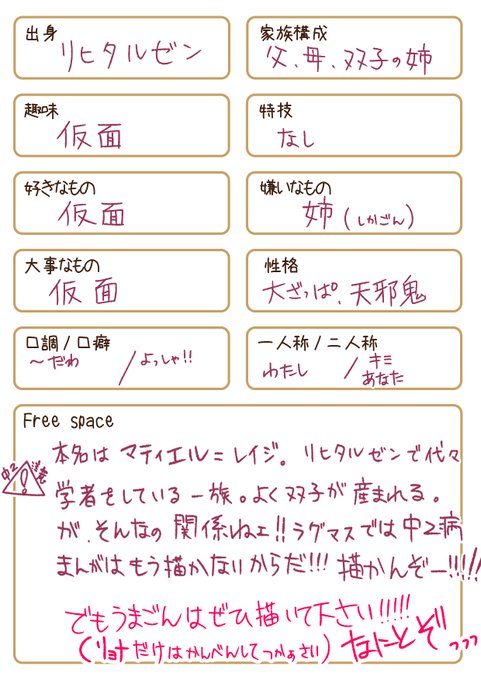 出身
リヒタルゼン
家族構成
父、母、双子の姉
趣味
仮面
特技
なし
好きなもの
仮面
嫌いなもの
姉(しかごん)
大事なもの
仮面
性格
大ざっぱ、天邪鬼
口調/口癖
〜だわ / よっしゃ!!
一人称/二人称
わたし / キミ
あなた
Free space
中2 注意 !
本名は マティエル=レイジ。リヒタルゼンで代々
学者をしている一族。よく双子が産まれる。
が、そんなの関係ねェ!!ラグマスでは中2病
まんがはもう描かないからだ!!! 描かんぞー!!!!!
でもうまごんはぜひ描いて下さい!!!!!
(リョナだけはかんべんしてつかぁさい) なにとぞっっっ